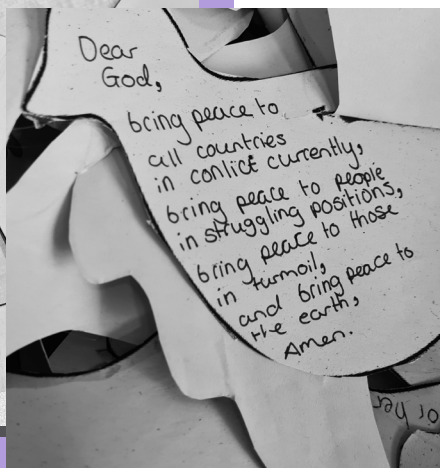 Dear
God,
bring peace to
all countries
in conlict currently,
bring peace to people
in struggling positions,
bring peace to those
in turmoil,
and bring peace to
the earth,
Amen.
or her